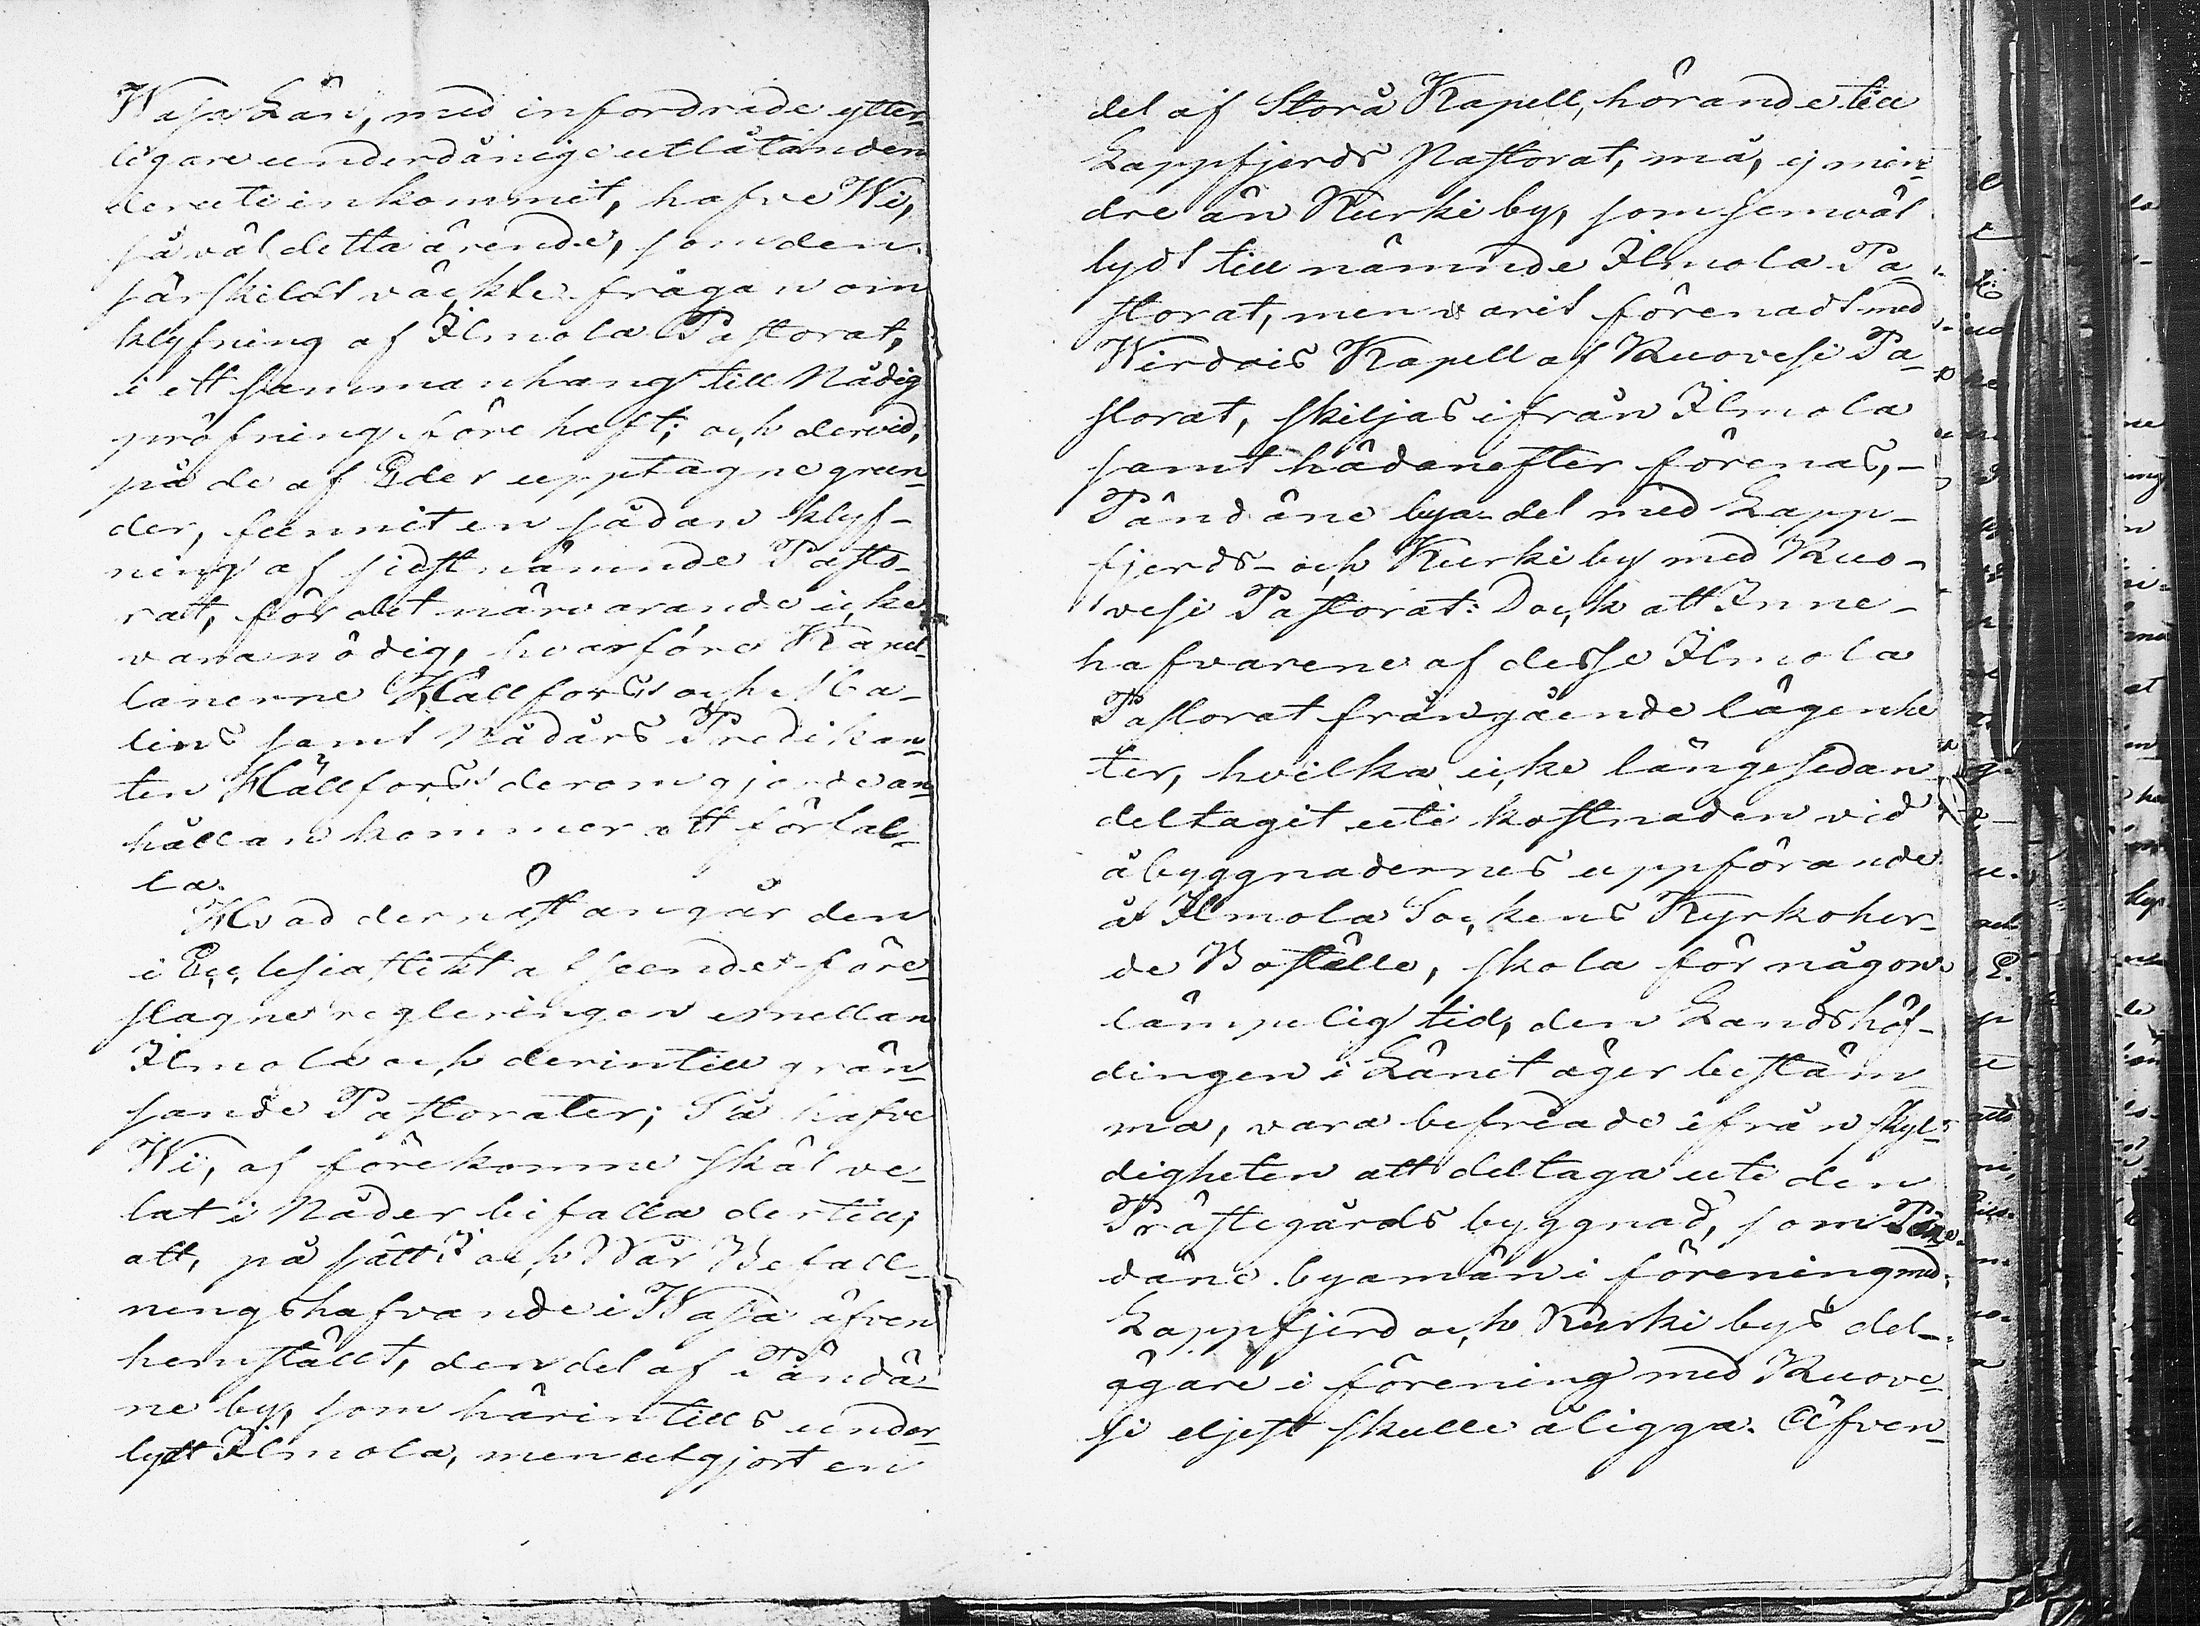 Wasa Län, med infordrade ytter-
ligare underdånige utlåtanden
deruti inkommit, hafve Wi,
så väl detta ärende, som den
särskildt väckte frågan om
klyfning af Ilmola Pastorat,
i ett sammanhang till Nådig
pröfning förehaft; och dervid,
på de af Eder upptagne grun-
der, funnit en sådan klyf-
ning af sidstnämnde Pasto-
rat, för det närvarande icke
vara nödig, hvarföre Kapel-
lanerne Hällfors och
samt Nådårs Predikan-
ten Hällfors derom gjorde an-
hållan kommer att förfal-
la.
Hvad dernäst angår den
i Ecclesiastikt afseende före-
slagne regleringen emellan
Ilmola och derintill grän-
sande Pastorater; Så hafve
Wi, af förekomne skäl ve-
lat i Nåder bifalla dertill;
att, på sätt I och Wår Befall-
ningshafvande i Wasa äfven
hemställt, den del af Pändä-
ne by, som härintills under-
lydt Ilmola, men utgjort en
del af Storå Kapell, hörande till
Lappfjerds Pastorat, må, ej min-
dre än Kurki by, som jemväl
lydt till nämnde Ilmola Pa-
storat, men varit förenadt med
Wirdois Kapell af Ruovesi Pa-
storat, skiljas ifrån Ilmola
samt hädanefter förenas,
Pändäne bya-del med Lapp-
fjerds- och Kurki by med Ruo-
vesi Pastorat: Dock att Inne-
hafvarene af desse Ilmola
Pastorat frångående lägenhe
ter, hvilka icke längesedan
deltagit uti kostnaden vid
åbyggnadernes uppförande
å Ilmola Sockens Kyrkoher-
de Boställe, skola för någon
lämpelig tid, den Landshöf-
dingen i Länet äger bestäm-
ma, vara befriade ifrån skyl-
digheten att deltaga uti den
Prästegårds byggnad, som Pän-
däne byamän i förening med
Lappfjerd och Kurki bys del-
ägare i förening med Ruove-
si eljest skulle åligga. Äfven-